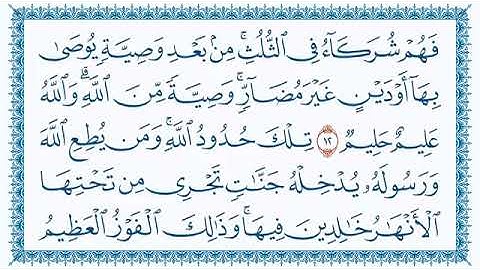 فَهُمْ شُرَكَآءُ فِى ٱلثُّلُثِ ۚ مِنۢ بَعْدِ وَصِيَّةٍ يُوصَىٰ
بِهَآ أَوْ دَيْنٍ غَيْرَ مُضَآرٍّ ۚ وَصِيَّةً مِّنَ ٱللَّهِ ۗ وَٱللَّهُ
عَلِيمٌ حَلِيمٌ ١٢ تِلْكَ حُدُودُ ٱللَّهِ ۚ وَمَن يُطِعِ ٱللَّهَ
وَرَسُولَهُۥ يُدْخِلْهُ جَنَّٰتٍ تَجْرِى مِن تَحْتِهَا
ٱلْأَنْهَٰرُ خَٰلِدِينَ فِيهَا ۚ وَذَٰلِكَ ٱلْفَوْزُ ٱلْعَظِيمُ